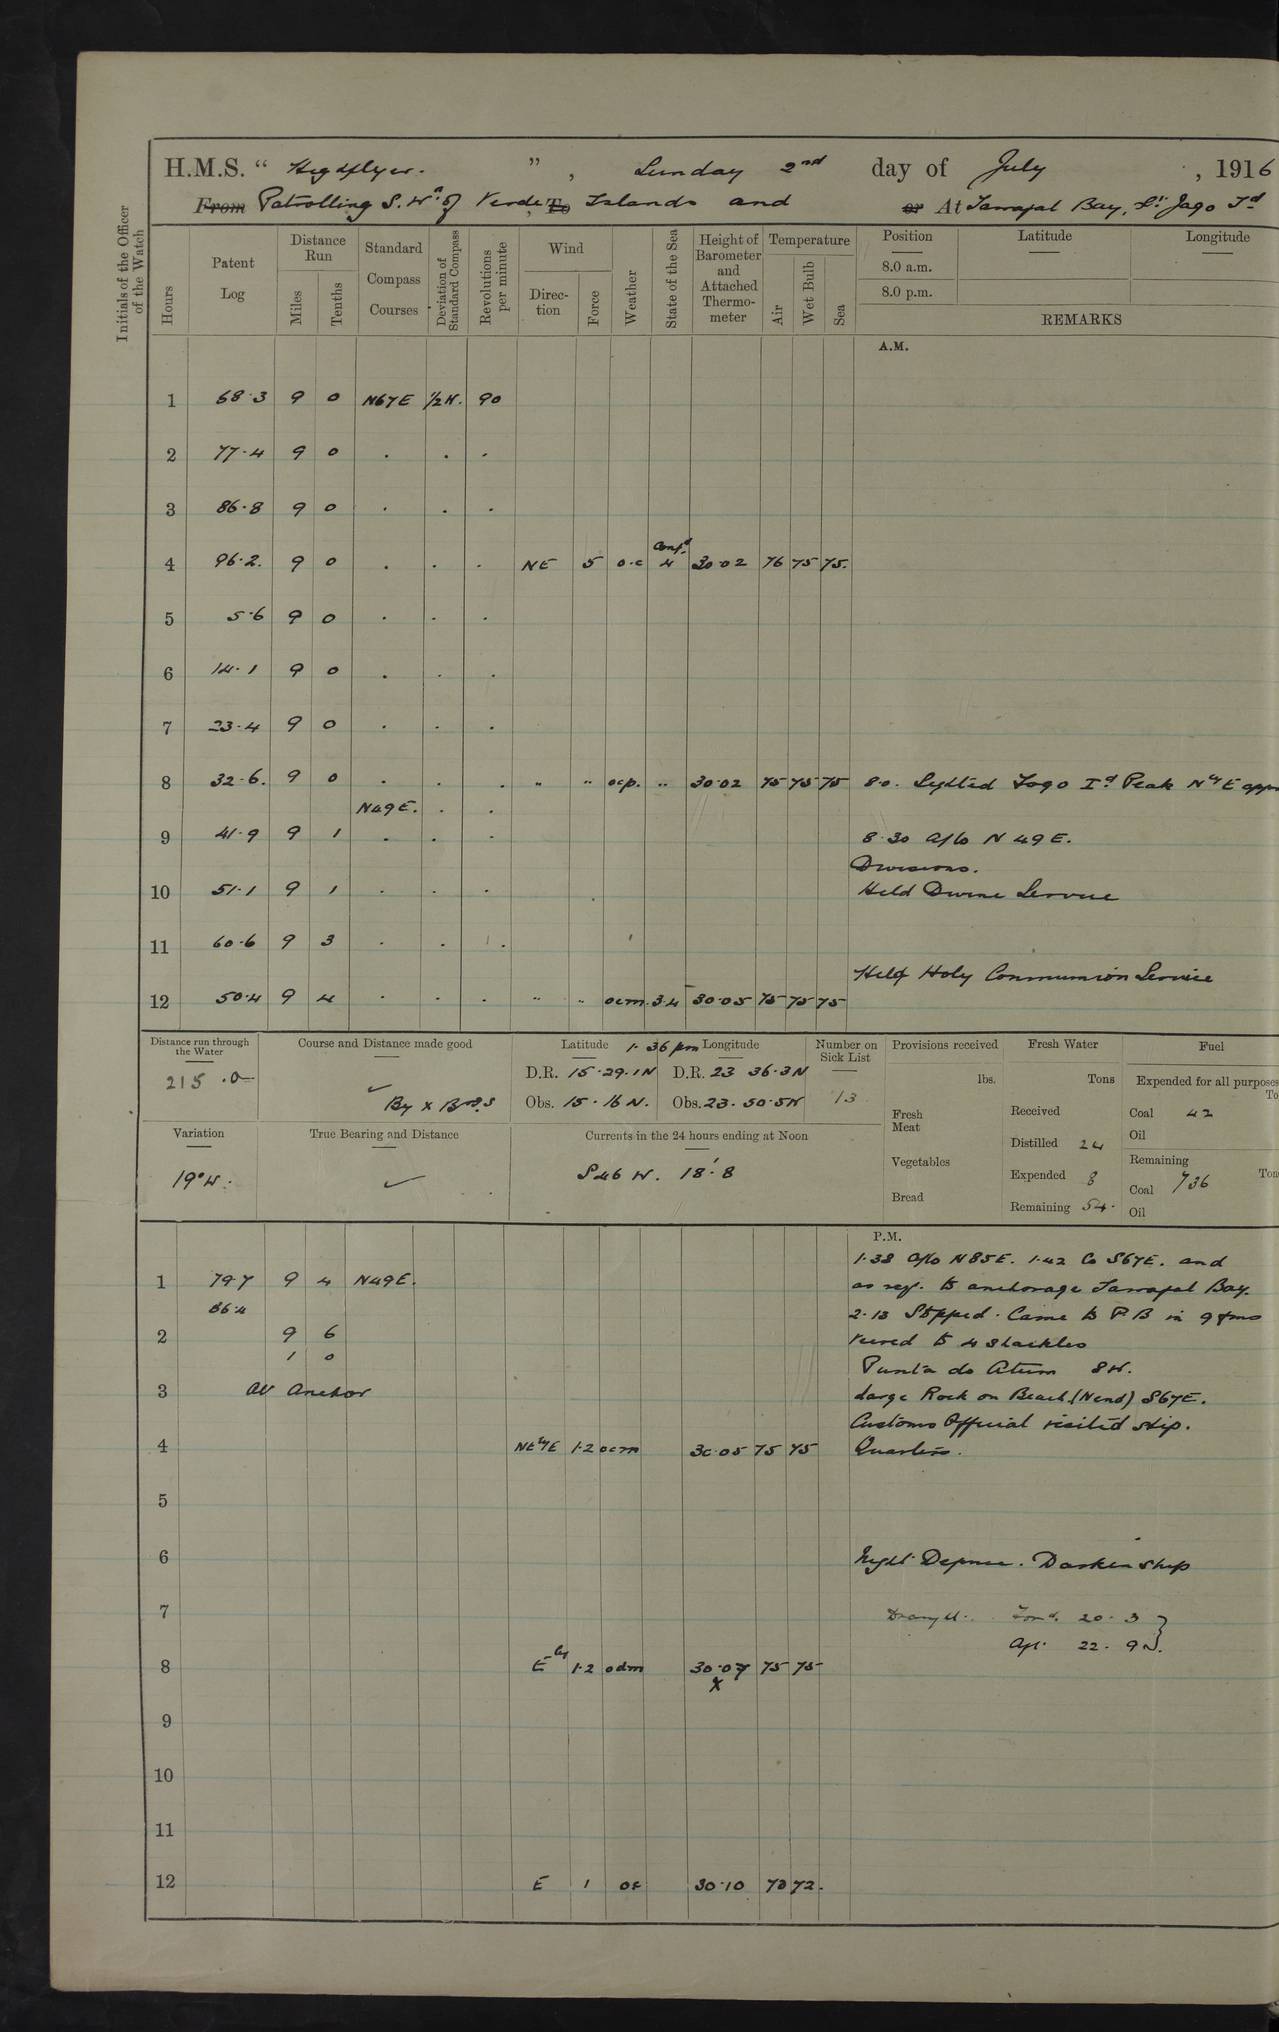 H.M.S. “ Highflyer. ” , Sunday 2nd day of July , 1916
From Patrolling S.Wd. of Verde To Islands and or At Tarrafal Bay, St. Jago Id
Initials of the Officer of the Watch
Hours Patent Log Distance Run Miles Tenths Standard Compass Courses Deviation of Standard Compass Revolutions per minute Wind Direction Force Weather State of the Sea Height of Barometer and Attached Thermometer Temperature Air Wet Bulb Sea Position Latitude Longitude
8.0 a.m.
8.0 p.m.
REMARKS
A.M.
1 68.3 9 0 N67E ½W. 90
2 77.4 9 0 . . .
3 86.8 9 0 . . .
4 96.2. 9 0 . . . NE 5 o.c Conf.d 4 30.02 76 75 75.
5 5.6 9 0 . . .
6 14.1 9 0 . . .
7 23.4 9 0 . . .
8 32.6. 9 0 . . . " " ocp. " 30.02 75 75 75 8.0. Sighted Fogo Id Peak NlyE appr
N49E. . .
9 41.9 9 1 . . . 8.30 a/co N 49 E.
Divisions.
10 51.1 9 1 . . . Held Divine Service
11 60.6 9 3 . . .
Held Holy Communion Service
12 50.4 9 4 . . . " " ocm. 3.4 30.05 75 75 75
Distance run through the Water Course and Distance made good Latitude 1.36 pm Longitude Number on Sick List Provisions received Fresh Water Fuel
215.0 D.R. 15.29.1N D.R. 23 36.3W lbs. Tons Expended for all purposes
By x Brgs Obs. 15.16 N. Obs. 23.50.5W 13 Fresh Meat Received Coal 42
Oil
Variation True Bearing and Distance Currents in the 24 hours ending at Noon Vegetables Distilled 24 Remaining
19°W. S46 W. 18'.8 Bread Expended 8 Coal 736
Remaining 54. Oil
P.M.
1.38 a/co N85E. 1.42 Co S67E. and
1 79.7 9 4 N49E. as req. to anchorage Tarrafal Bay.
86.4 2.13 Stopped. Came to P.B in 9 fms
2 9 6 veered to 4 shackles
1 0 Punta do Atum 8W.
3 At Anchor Large Rock on Beach (Nend) S67E.
Customs Official visited ship.
4 NElyE 1.2 ocm 30.05 75 75 Quarters.
5
6 Night Defence. Darken ship
7 Draught. Ford. 20. 3
Aft. 22. 9
8 Ely 1.2 odm 30.07 75 75
x
9
10
11
12 E 1 oc 30.10 73 72.